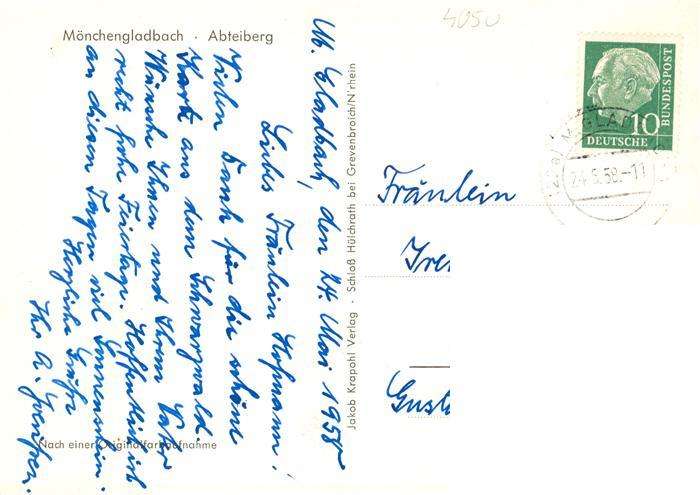 4050
Mönchengladbach · Abteiberg
M. Gladbach, den 24. Mai 1958
Liebes Fräulein Hofmann!
Vielen Dank für die schöne
Karte aus dem Schwarzwald.
Wünsche Ihnen und Ihrem Vater
recht frohe Feiertage. Hoffentlich ist
an diesen Tagen viel Sonnenschein.
Herzliche Grüße
Ihr A.
Nach einer Originalfarbaufnahme
Jakob Krapohl Verlag · Schloß Hülchrath bei Grevenbroich/N'rhein
10
BUNDESPOST
DEUTSCHE
24.5.58.-17
Fräulein
Ire
Gust